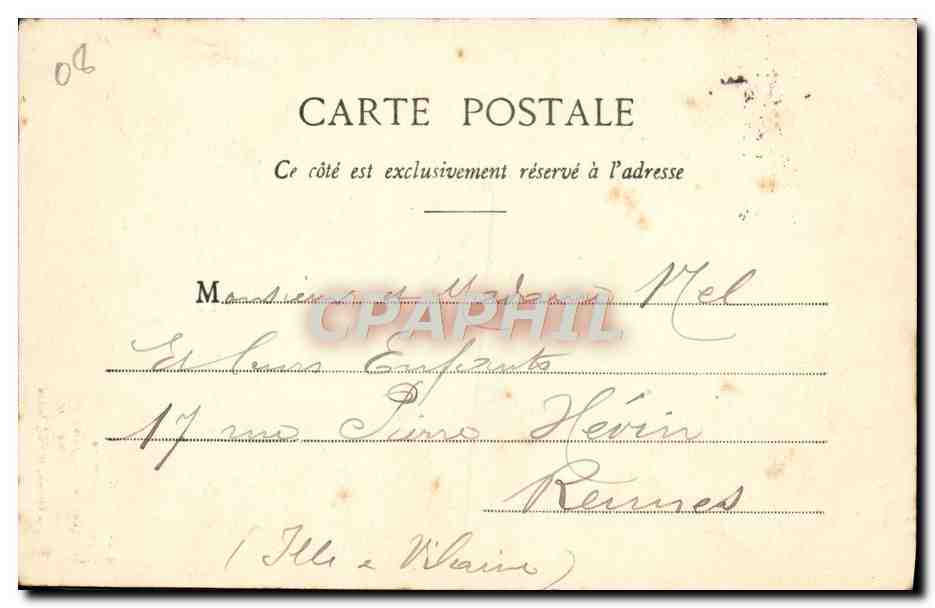 08
CARTE POSTALE
Ce côté est exclusivement réservé à l'adresse
Monsieur et Madame Nel
CPAPHIL
Et leurs Enfants
17 rue Pierre Hévin
Rennes
(Ille & Vilaine)